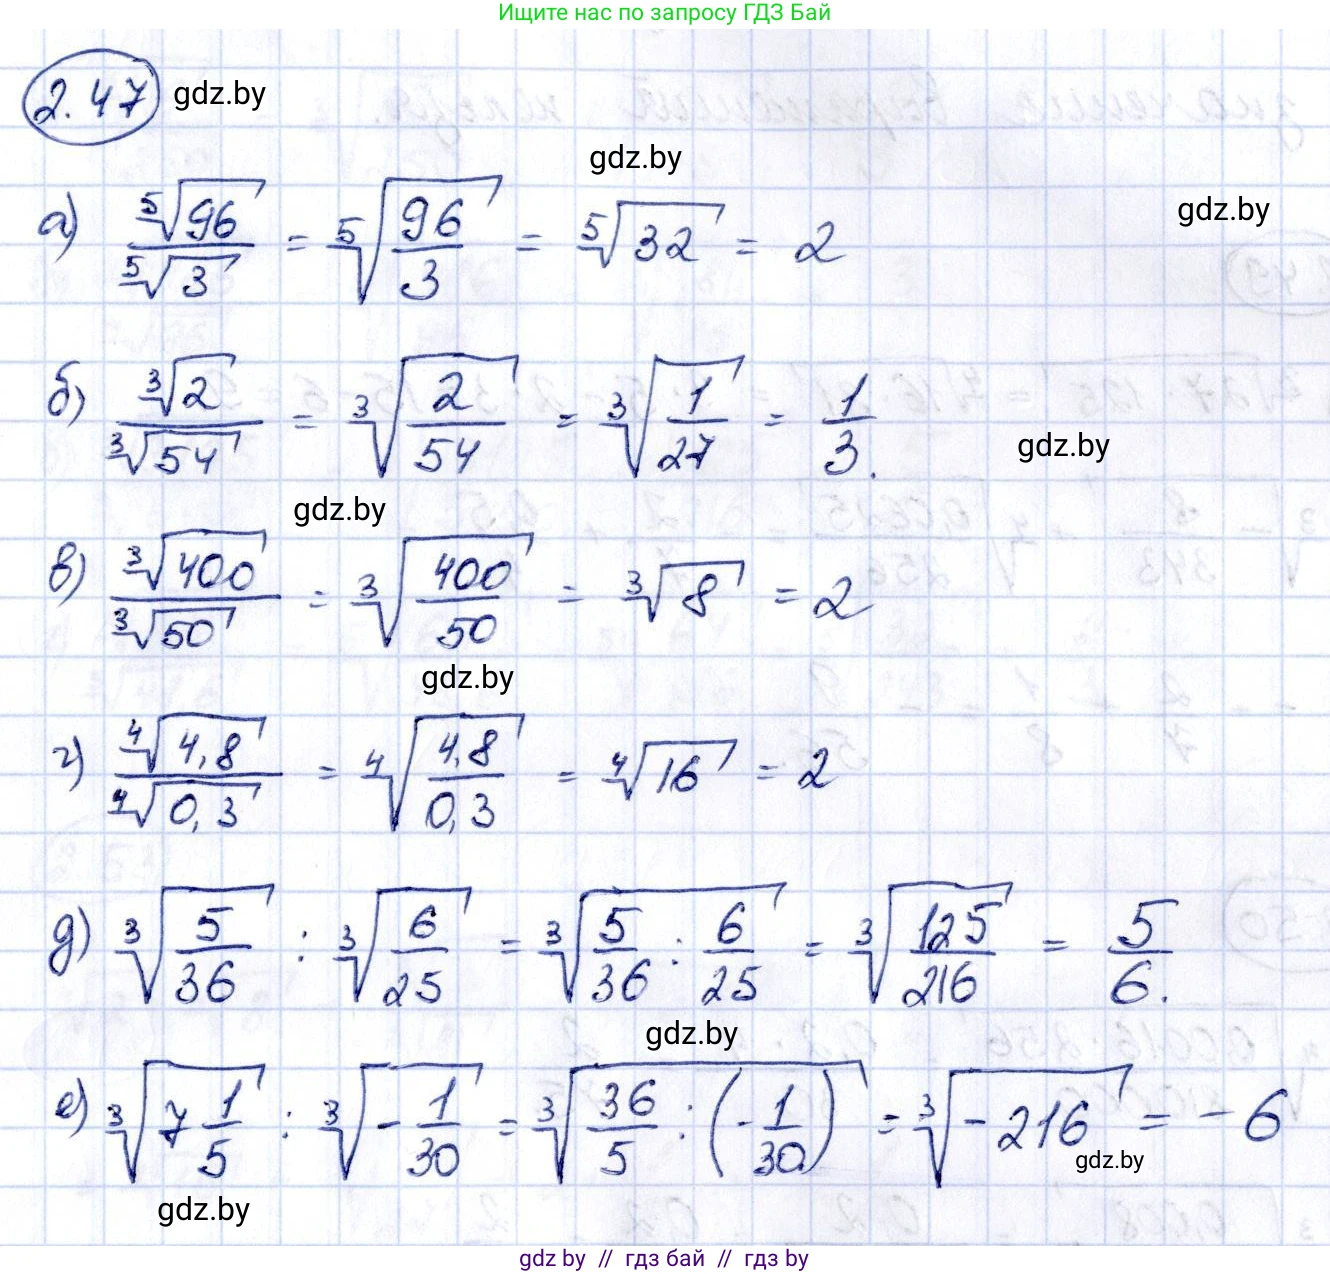 Ищите нас по запросу ГДЗ Бай
2.47 gdz.by
gdz.by
gdz.by
а) ⁵√96 / ⁵√3 = ⁵√(96/3) = ⁵√32 = 2
б) ³√2 / ³√54 = ³√(2/54) = ³√(1/27) = 1/3.
gdz.by
gdz.by
в) ³√400 / ³√50 = ³√(400/50) = ³√8 = 2
gdz.by
г) ⁴√4,8 / ⁴√0,3 = ⁴√(4,8/0,3) = ⁴√16 = 2
д) ³√(5/36) : ³√(6/25) = ³√(5/36 : 6/25) = ³√(125/216) = 5/6.
gdz.by
е) ³√(7 1/5) : ³√(-1/30) = ³√(36/5 : (-1/30)) = ³√(-216) = -6
gdz.by
gdz.by
gdz by // гдз бай // гдз by